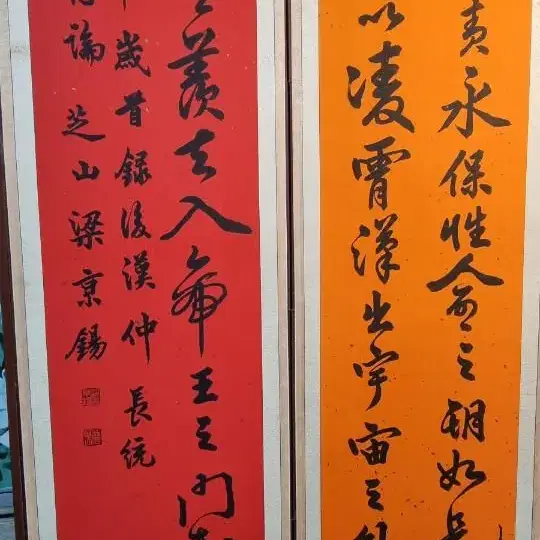 責永保性命之期如是
以凌霄漢出宇宙之外
羨夫入帝王之門哉
歲首錄後漢仲長統
論 芝山梁京錫